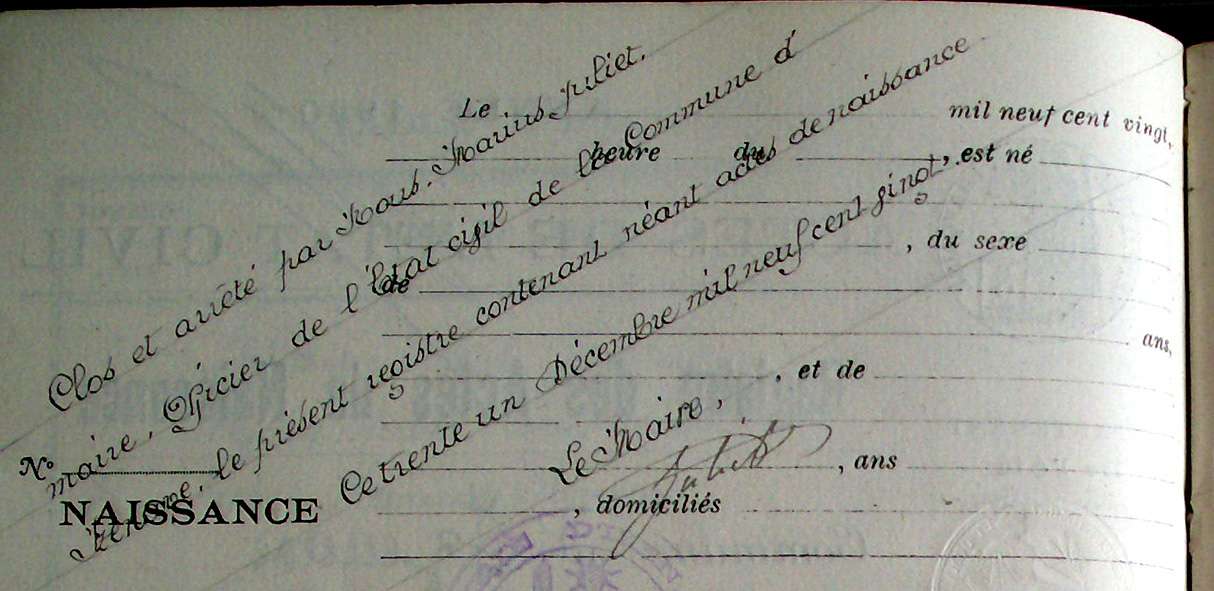 Le mil neuf cent vingt,
heure du , est né
, du sexe
de
ans,
, et de
, ans
, domiciliés
N°
NAISSANCE
Clos et arrêté par Nous, Marius Juliet,
maire, Officier de l'Etat civil de la Commune d'
le présent registre contenant néant actes de naissance
Ce trente un Décembre mil neuf cent vingt.
Le Maire,